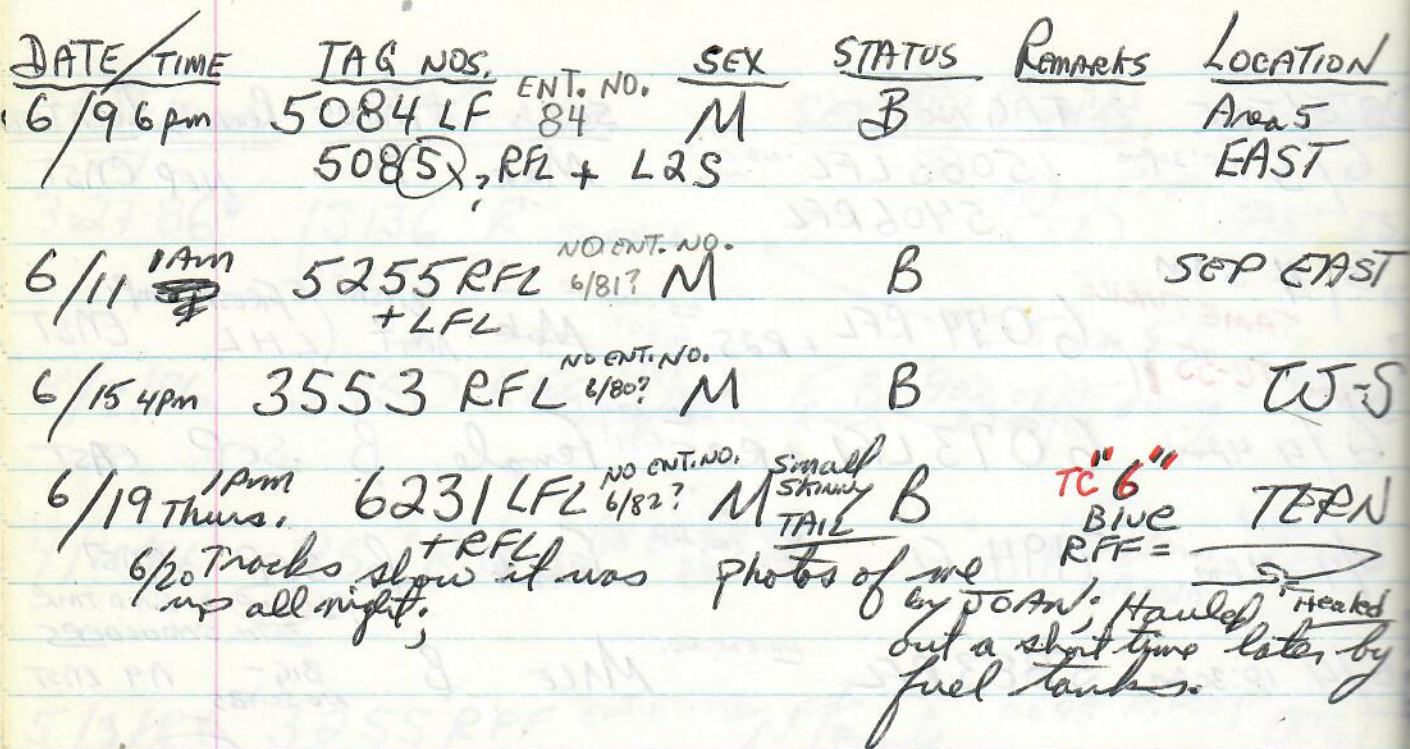 DATE/TIME TAG NOS. SEX STATUS REMARKS LOCATION
6/9 6pm 5084 LF ENT. NO. 84 M B Area 5
5085, RFL + L2S EAST
6/11 1Am 5255 RFL NO ENT. NO. 6/81? M B SEP EAST
+ LFL
6/15 4pm 3553 RFL NO ENT. NO. 6/80? M B W-S
6/19 1pm Thurs. 6231 LFL NO ENT. NO. 6/82? M Small SKINNY TAIL B TC "6" Blue TERN
+ RFL RFF =
6/20 Tracks show it was photos of me
up all night; by JOAN; Hauled Healed
out a short time later by
fuel tanks.